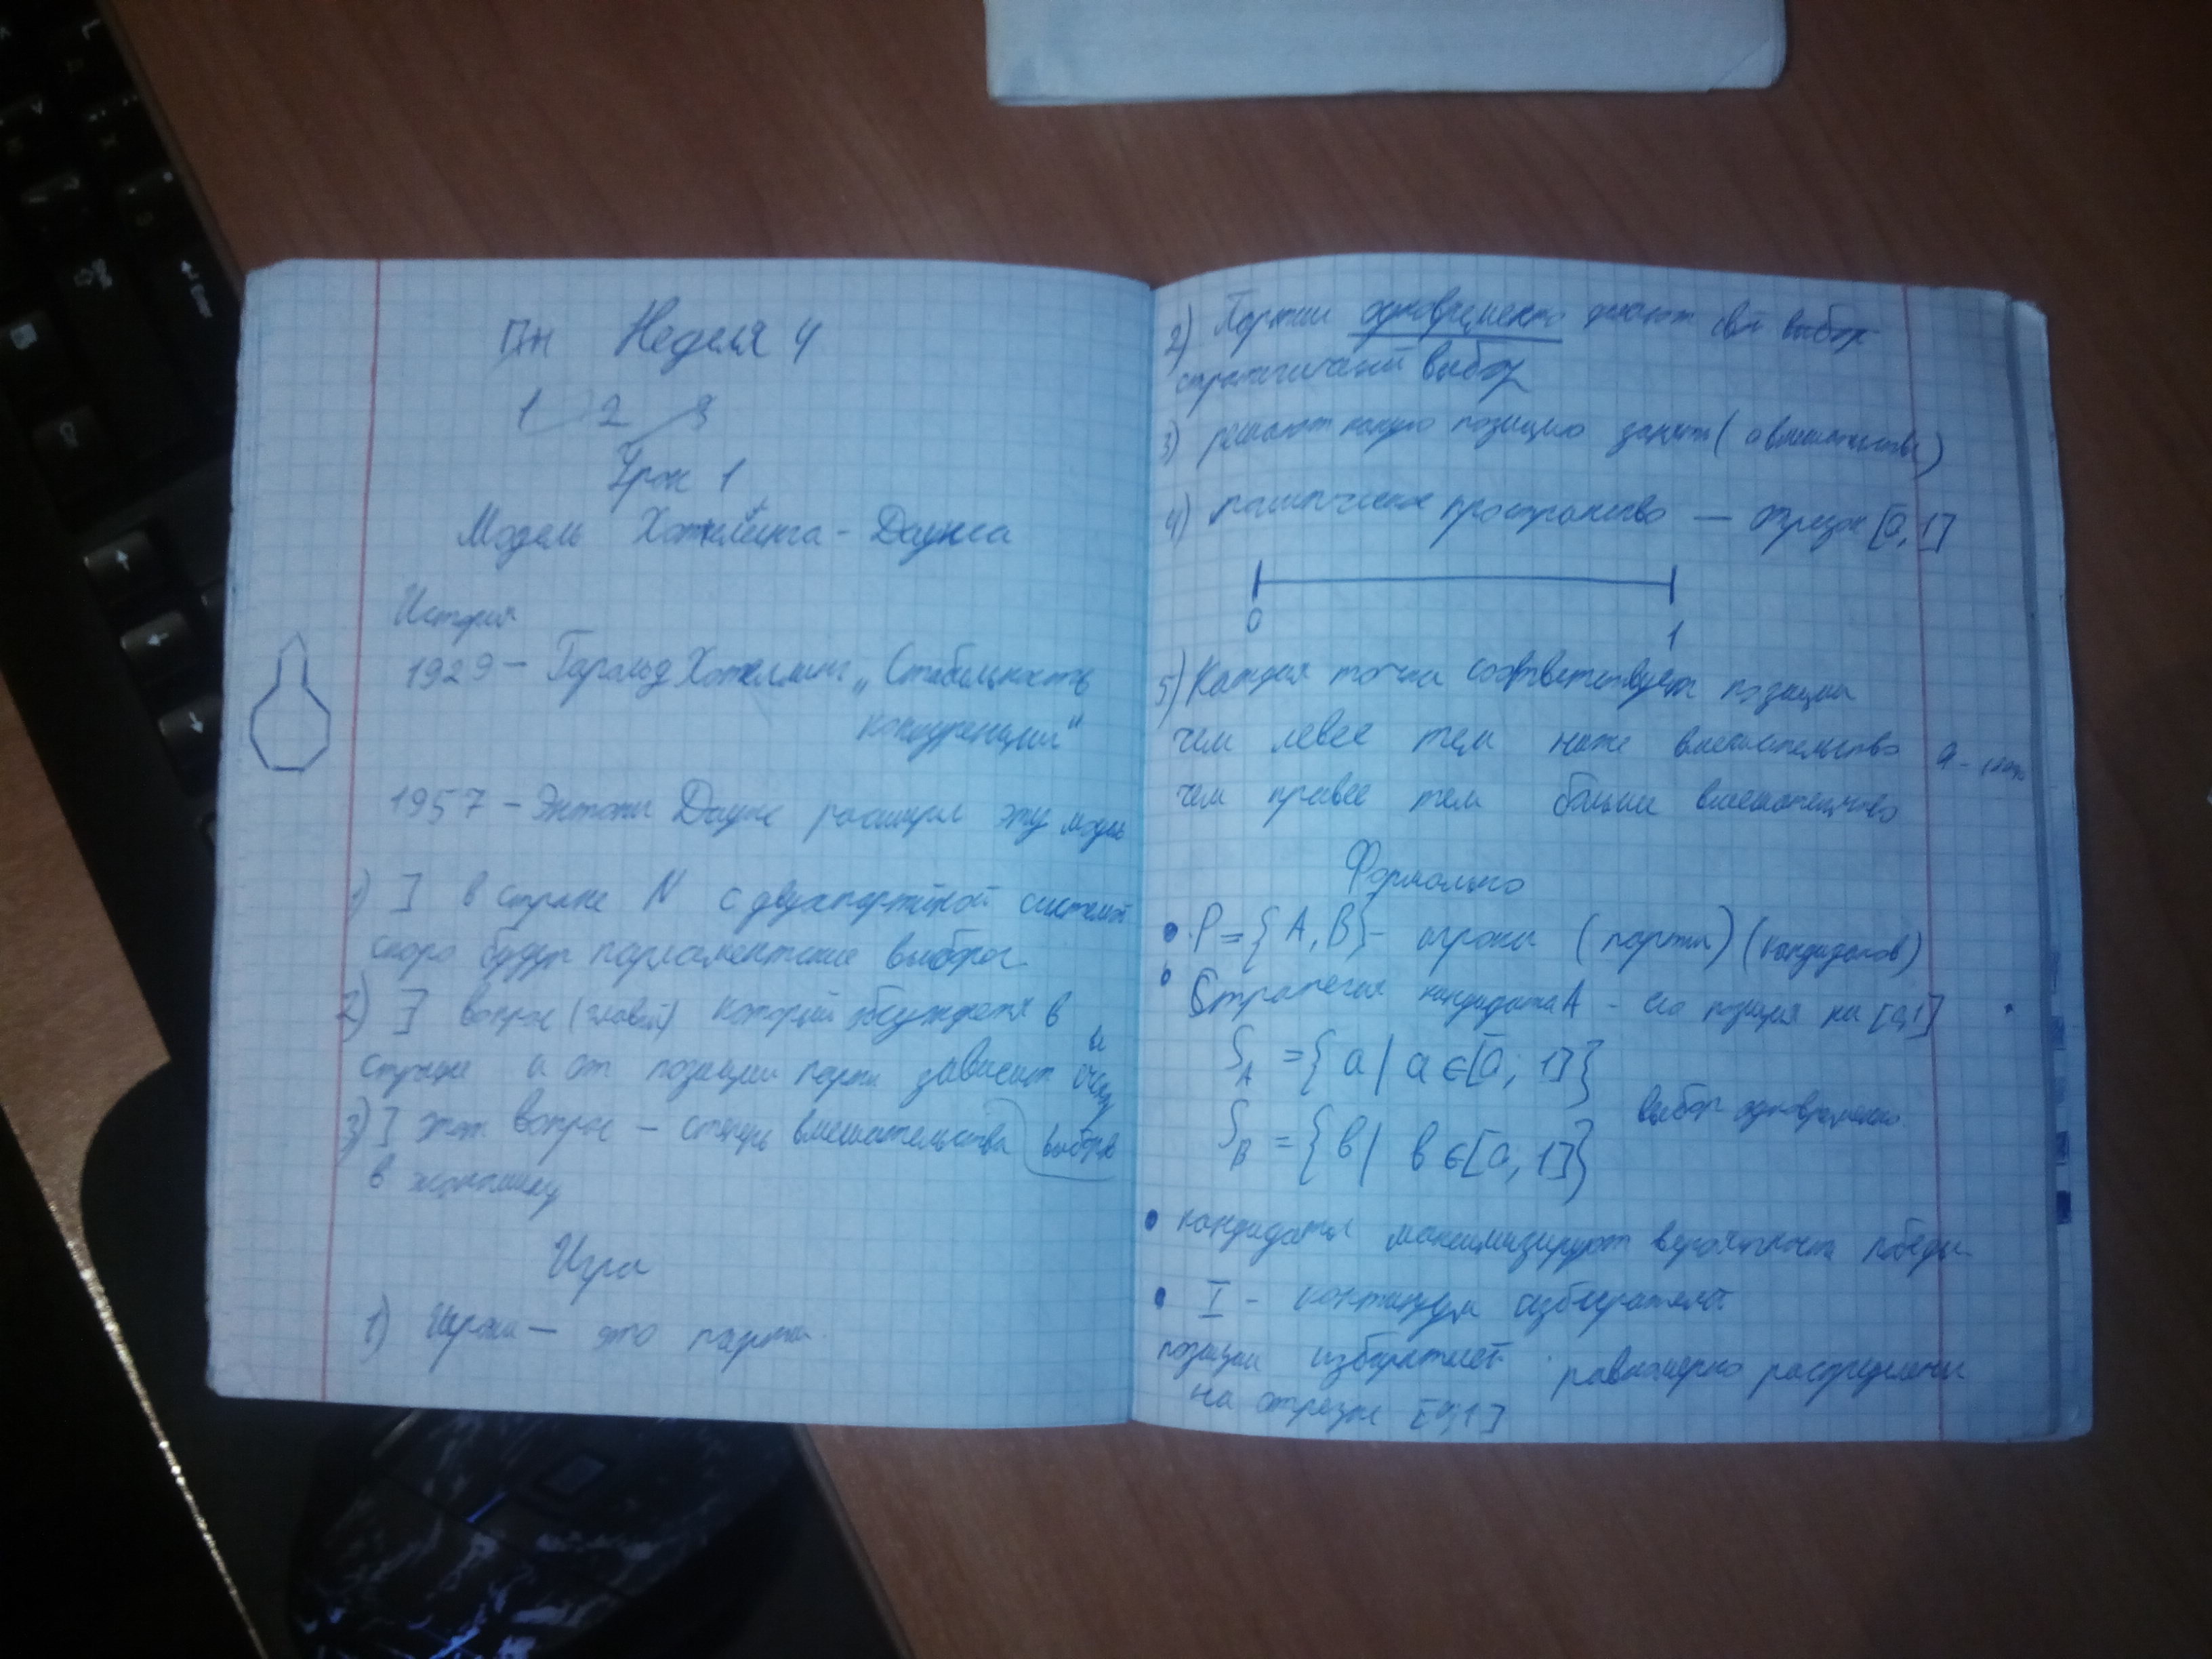 Пн Неделя 4
1 2 3
Урок 1
Модель Хотеллинга - Даунса
История
1929 - Гарольд Хотеллинг „Стабильность
конкуренции"
1957 - Энтони Даунс расширил эту модель
1) ] в стране N с двухпартийной системой
скоро будут парламентские выборы
2) ] вопрос (главный) который обсуждается в
стране и от позиции партии зависит
3) ] этот вопрос - степень вмешательства выборы
в экономику
Игра
1) Игроки - это партии.
2) Партии одновременно делают свой выбор
стратегический выбор
3) решают какую позицию занять (о вмешательстве)
4) политическое пространство - отрезок [0,1]
0
1
5) Каждая точка соответствует позиции
чем левее тем ниже вмешательство
чем правее тем больше вмешательство
Формально
• P = {A, B} - игроки (партии) (кандидатов)
• Стратегия кандидата A - его позиция на [0,1]
S_A = {a | a ∈ [0; 1]}
выбор одновременно
S_B = {в | в ∈ [0, 1]}
• кандидаты максимизируют вероятность победы
• I - континуум избирателей
позиции избирателей равномерно распределены
на отрезке [0,1]